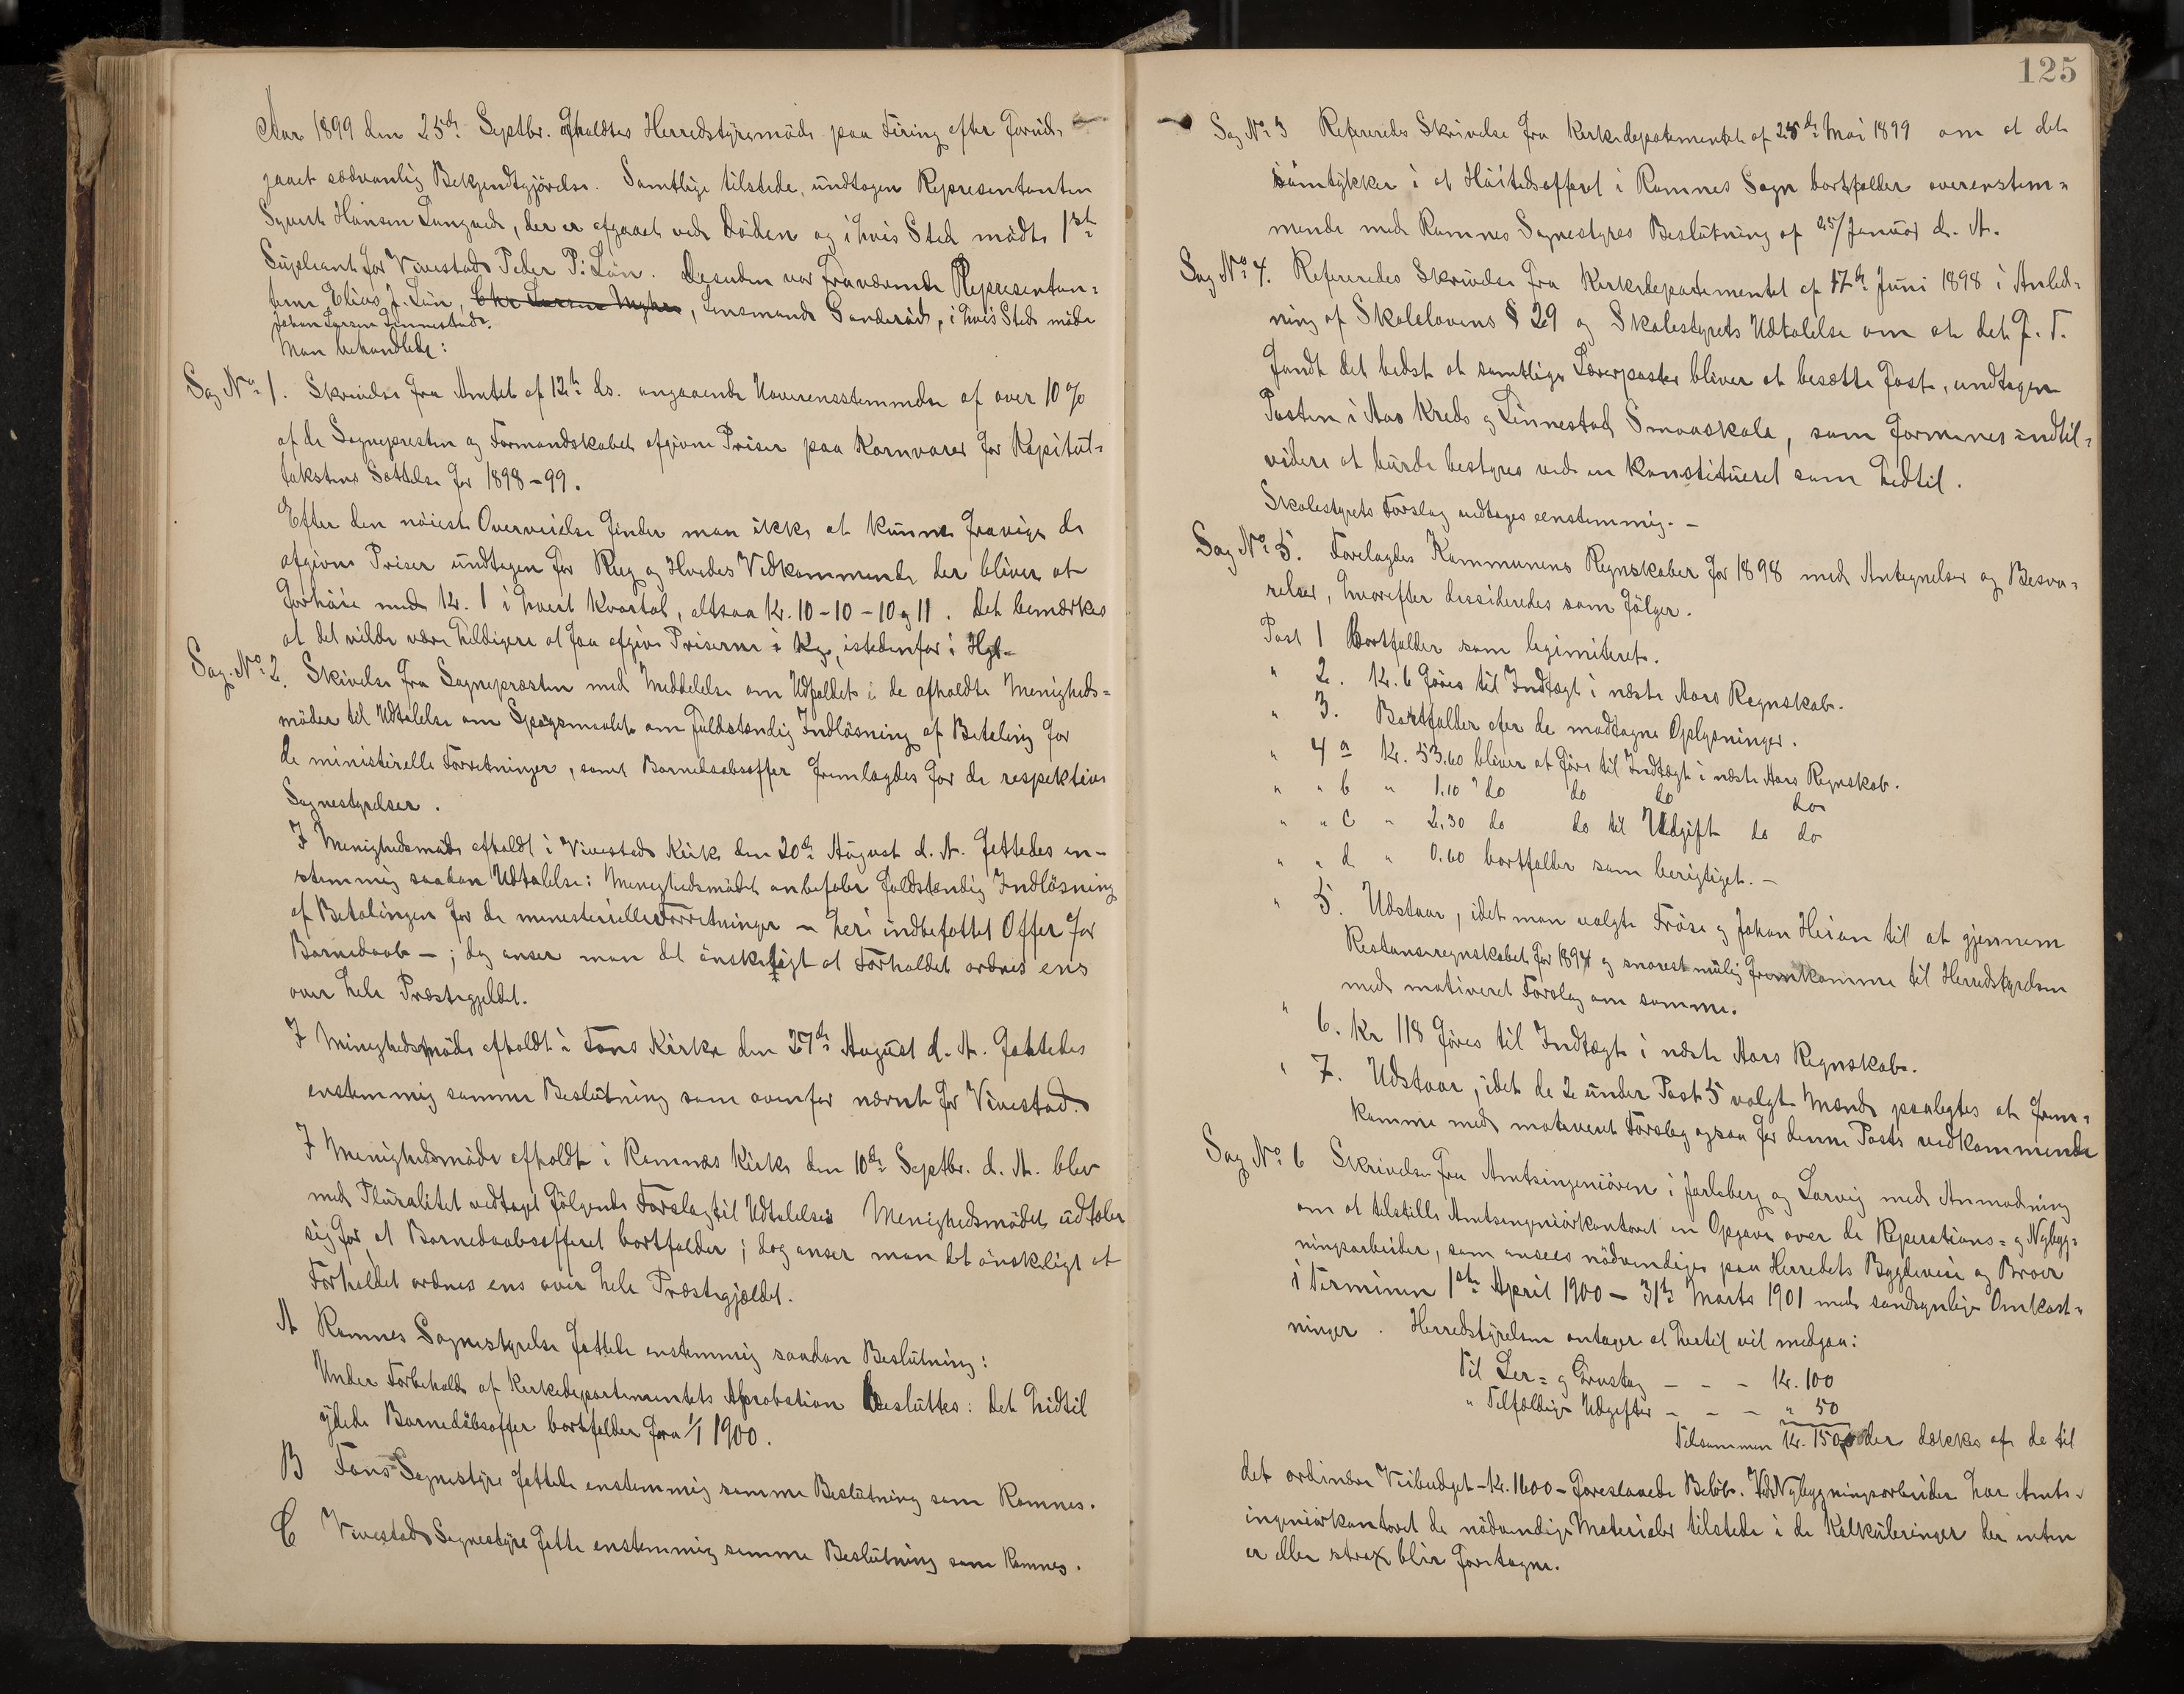 Aar 1899 den 25de Septbr. afholdtes Herredstyremöde paa Firing efter forud-
gaaet sædvanlig Bekjendtgjörelse. Samtlige tilstede, undtagen Repræsentanten
Syvert Hansen Langved, der er afgaaet ved Döden og i hvis Sted mödte 1ste
Supleant for Vivestad Peder P. Lún. Desuden var fraværende Repræsentan-
terne Elias J. Lún, Chr Larsen Myhre, Lensmand Sanderöd, i hvis Sted möde
Johan Larsen Linnestad.
Man behandlede:
Sag No 1. Skrivelse fra Amtet af 12te ds. angaaende Uoverensstemmelse af over 10%
af de Sognepresten og Formandskabet afgivne Priser paa Kornvarer for Kapitul-
takstens Sættelse for 1898-99.
Efter den nöieste Overveielse finder man ikke at kunne fravige de
afgivne Priser undtagen for Rug og Hvedes Vedkommende der bliver at
forhöie med Kr. 1 i hvert Kvartal, altsaa Kr. 10-10-10 og 11. Det bemærkes
at det vilde være heldigere at faa afgive Priserne i Kg., istedenfor i Hgl-
Sag. No 2. Skivelse fra Sognepræsten med Meddelelse om Udfaldet i de afholdte Menigheds-
möder til Udtalelse om Spörgsmaalet om fuldstændig Indlösning af Betaling for
de ministerielle Forretninger, samt Barnedaabsoffer fremlagdes for de respektive
Sognestyrelser.
I Menighedsmöde afholdt i Vivestad Kirke den 20de August d. A. fattedes en-
stemmig saadan Udtalelse: Menighedsmödet anbefaler fuldstændig Indlösning
af Betalingen for de menesterielle Forretninger - heri indbefattet Offer for
Barnedaab - ; dog anser man det önskeligt at Forholdet ordnes ens
over hele Præstegjeldet.
I Menighedsmöde afholdt i Fons Kirke den 27de August d. A. fattedes
enstemmig samme Beslutning som ovenfor nævnt for Vivestad.
I Menighedsmöde afholdt i Ramnæs Kirke den 10de Septbr. d. A. blev
med Pluralitet vedtaget fölgende Forslag til Udtalelse: Menighedsmödet udtaler
sig for at Barnedaabsofferet bortfalder; dog anser man det önskeligt at
Forholdet ordnes ens over hele Præstegjældet.
A Ramnes Sognestyrelse fattede enstemmig saadan Beslutning:
Under Forbehold af Kirkedepartementets Aprobation besluttes: Det hidtil
ydede Barnedåbsoffer bortfalder fra 1/1 1900.
B Fons Sognestyre fattede enstemmig samme Beslutning som Ramnes.
C Vivestad Sognestyre fatte enstemmig samme Beslutning som Ramnes.
125
Sag No 3 Refereredes Skrivelse fra Kirkedepatementet af 25de Mai 1899 om at det
samtykker i at Höitidsofferet i Ramnes Sogn bortfalder overenstem-
mende med Ramnes Sognestyres Beslutning af 25/Januar d. A.
Sag No 4. Refereredes Skrivelse fra Kirkedepartementet af 17de Juni 1898 i Anled-
ning af Skolelovens § 29 og Skolestyrets Udtalelse om at det f. T.
fandt det bedst at samtlige Lærerposter bliver at besætte fast, undtagen
Posten i Aas Kreds og Linnestad Smaaskole, som formenes indtil-
videre at burde bestyres ved en Konstitueret som hidtil.
Skolestyrets Forslag vedtages eenstemmig. -
Sag No 5. Forelagdes Kommunens Regnskaber for 1898 med Antegnelser og Besva-
relser, hvorefter dessideredes som fölger.
Post 1 Bortfalder som legimiteret.
" 2. Kr. 6 föres til Indtægt i næste Aars Regnskab.
" 3. Bortfalder efter de modtagne Oplysninger.
" 4 a Kr. 53.60 bliver at före til Indtægt i næste Aars Regnskab.
" " b " 1.10 do do do do
" " c " 2,30 do do til Udgift do do
" " d " 0.60 bortfalder som berigtiget. -
" 5. Udstaar, idet man valgte Fröse og Johan Heian til at gjennem
Restanseregnskabet for 1897 og snarest mulig fremkomme til Herredstyrelsen
med motiveret Forslag om samme.
" 6. Kr 118 föres til Indtægt i næste Aars Regnskab.
" 7. Udstaar, idet de 2 under Post 5 valgte Mænd paalegtes at frem-
komme med motiveret Forslag ogsaa for denne Posts vedkommende
Sag No 6 Skrivelse fra Amtsingeniören i Jarlsberg og Larvig med Anmodning
om at tilstille Amtsingeniörkontoret en Opgave over de Reperations- og Nybyg-
ningsarbeider, som ansees nödvendige paa Herredets Bygdeveie og Broer
i Terminen 1ste April 1900 - 31te Marts 1901 med sandsynlige Omkost-
ninger. Herredstyrelsen antager at hertil vil medgaa:
Til Ler- og Grustag - - - Kr. 100
" Tilfældige Udgifter - - - " 50
Tilsammen Kr. 150, der dækkes af de til
det ordinære Veibudget - Kr. 1600 - foreslaaede Belöb. Ved Nybygningsarbeider har Amts-
ingeniörkontoret de nödvendige Materialer tilstede i de Kalkuleringer der enten
er eller strax blir foretagne.